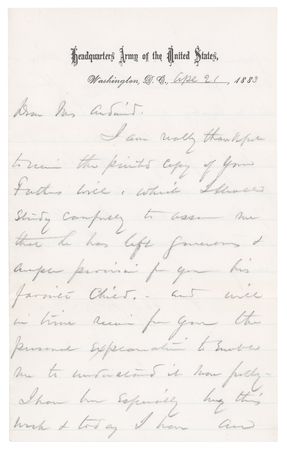 Headquarters Army of the United States,
Washington, D.C., Apl 21, 1883
Dear Mrs
I am really thankful
to receive the printed copy of Your
Fathers Will, which I should
study carefully to assure me
that he has left generous &
ample provision for you his
favorite Child. - and will
in time receive from You the
personal explanation to Enable
me to understand it more fully -
I have been Especially busy this
week & today I have